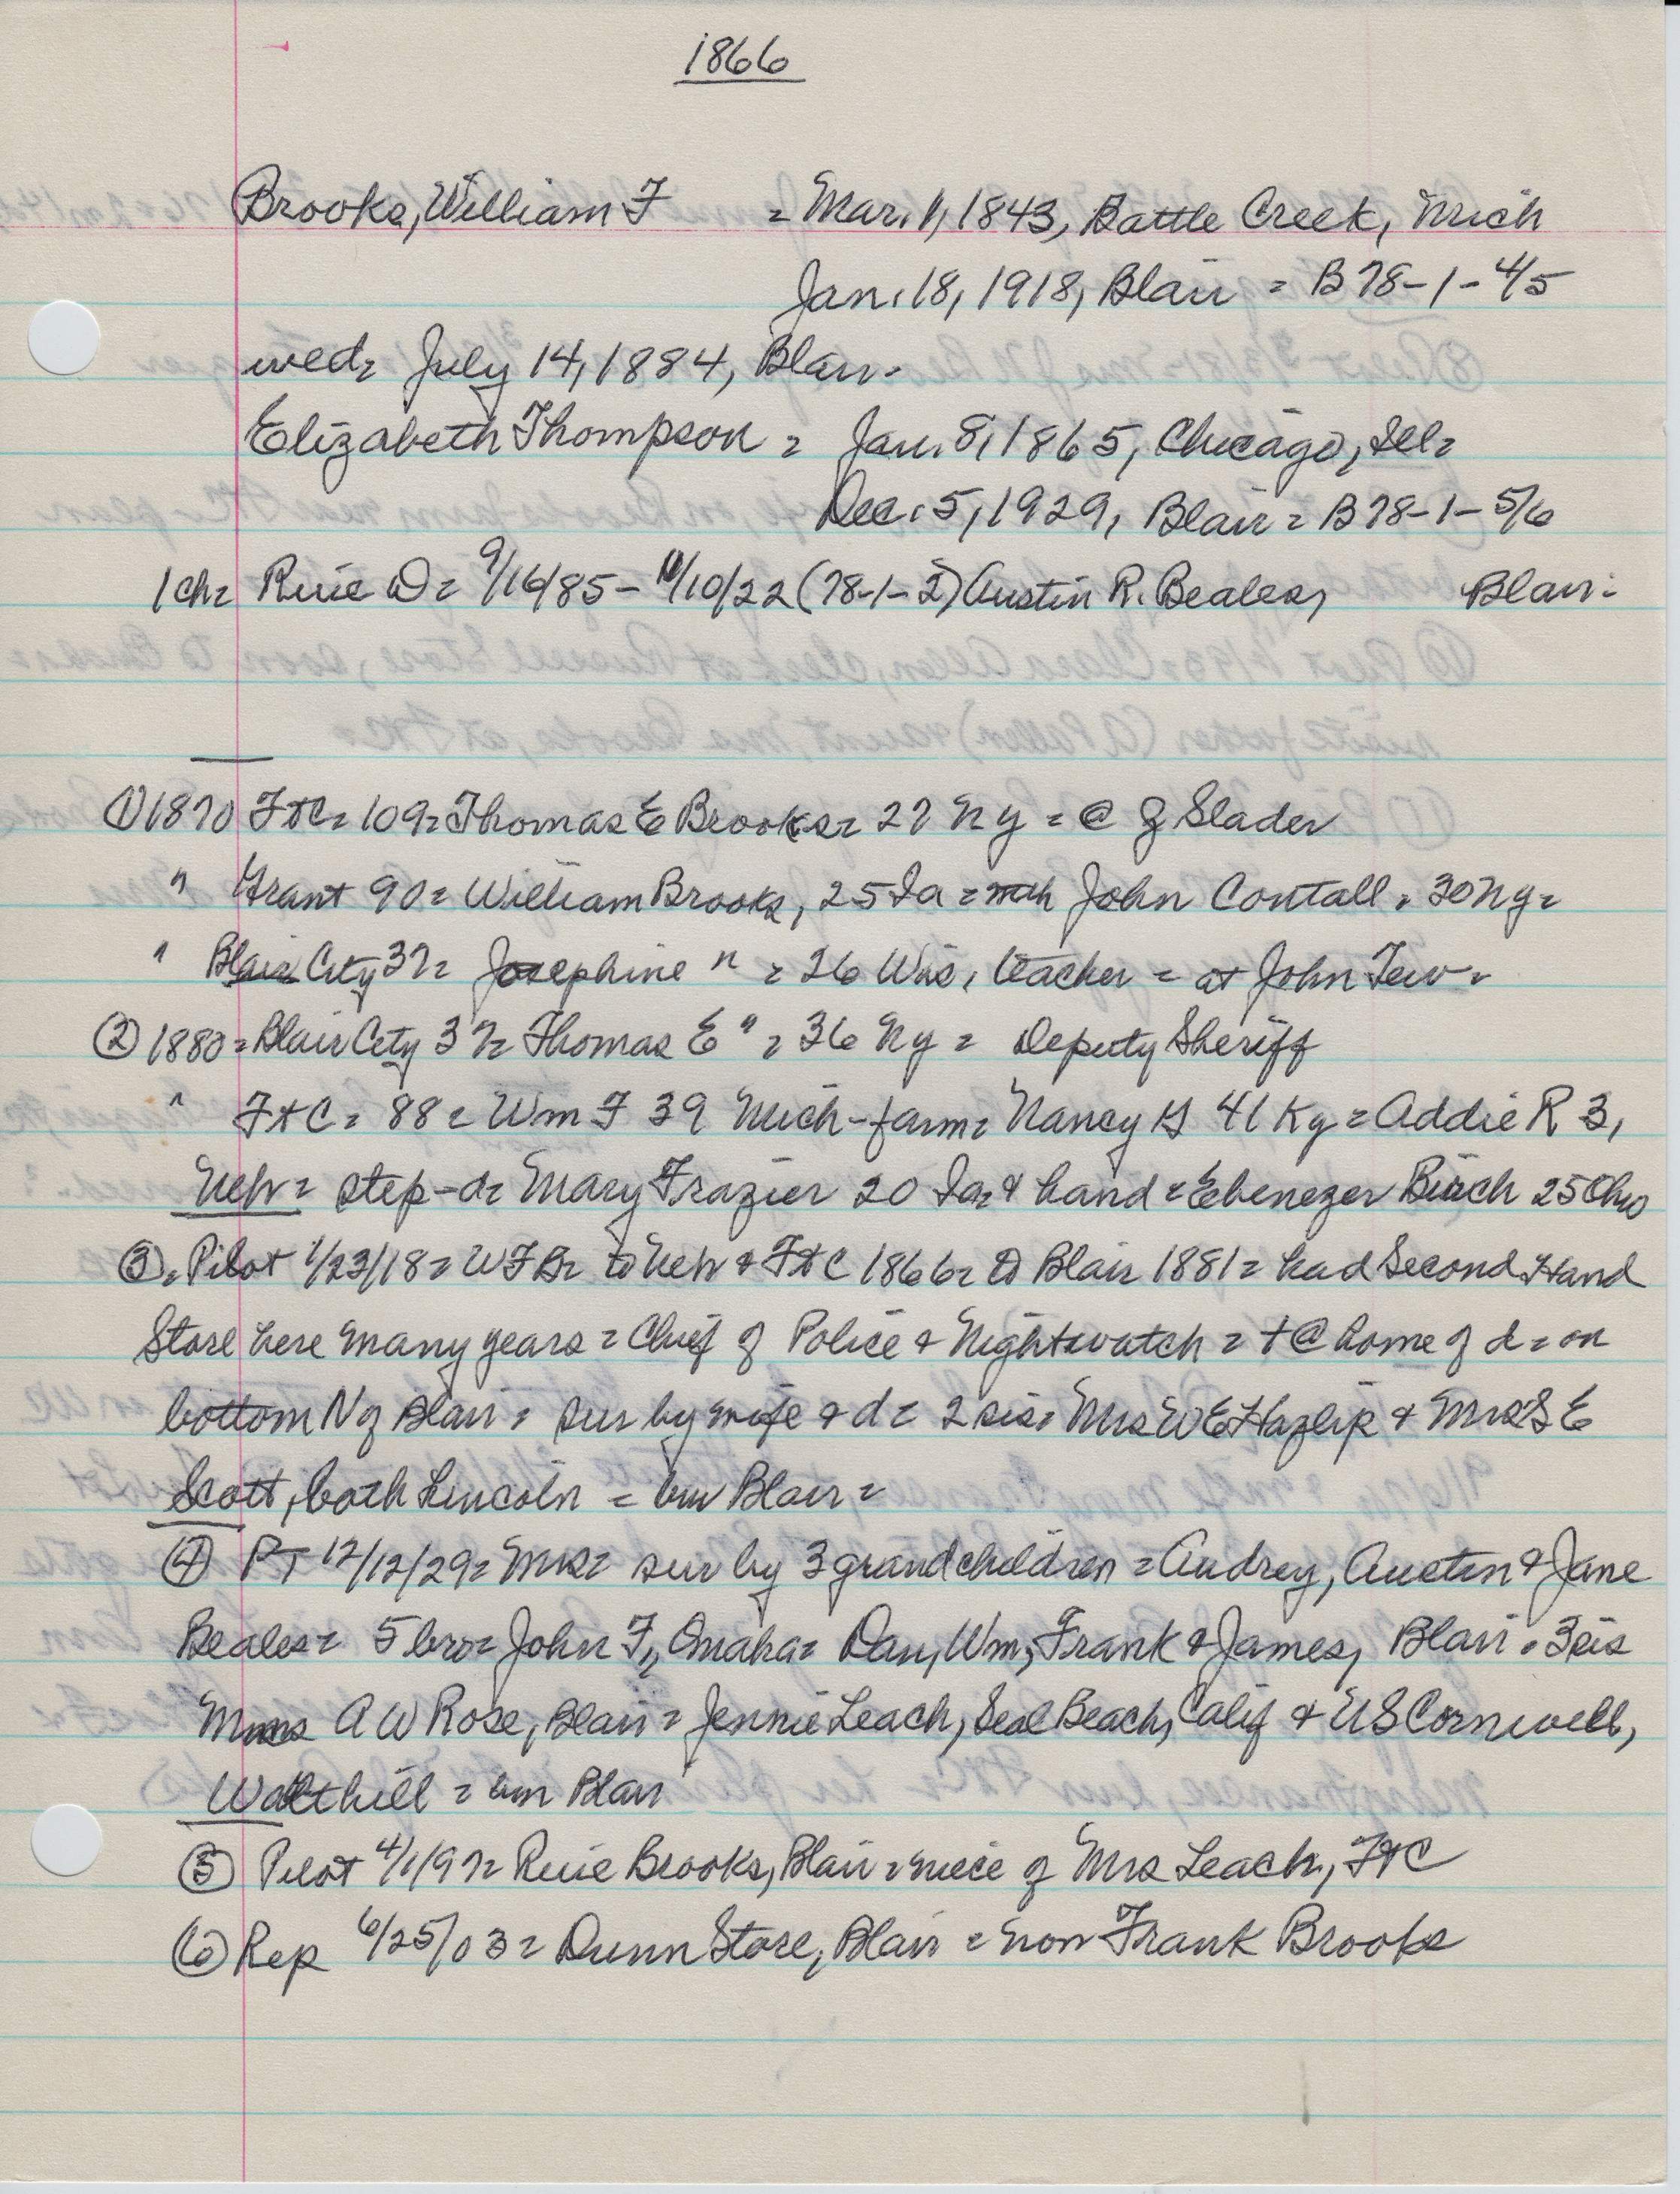 1866
Brooks, William F = Mar. 1, 1843, Battle Creek, Mich
Jan. 18, 1918, Blair = B 78-1-4/5
wed= July 14, 1884, Blair-
Elizabeth Thompson = Jan. 8, 1865, Chicago, Ill=
Dec. 5, 1929, Blair = B 78-1-5/6
1 ch= Ruie D= 9/16/85 - 11/10/22 (78-1-2) Austin R. Beales, Blair-
① 1870 FtC= 109= Thomas E Brooks= 27 NY = @ J Slader
" Grant 90= William Brooks, 25 Ia = with John Contall, 30 NY=
" Blair City 37= Josephine " = 26 Wis, teacher = at John Tew-
② 1880= Blair City 37= Thomas E " = 36 NY = Deputy Sheriff
" FtC= 88= Wm F 39 Mich-farm= Nancy H 41 Ky= Addie R 3,
Neb= step-d= Mary Frazier 20 Ia= & hand= Ebenezer Birch 25 Ohio
③. Pilot 1/23/18= WFB= to Neb & FtC 1866= to Blair 1881= had Second Hand
Store here many years = Chief of Police & Nightwatch = + @ home of d= on
bottom N of Blair= sur by wife & d= 2 sis= Mrs W E Hazlip & Mrs S E
Scott, both Lincoln = bur Blair=
④ PT 12/12/29= Mrs= sur by 3 grandchildren = Audrey, Austin & Jane
Beales= 5 bro= John F, Omaha= Dan, Wm, Frank & James, Blair= 3 sis
Mmes A W Rose, Blair= Jennie Leach, Seal Beach, Calif & U S Cornwell,
Walthill = bur Blair
⑤ Pilot 4/1/97= Ruie Brooks, Blair= niece of Mrs Leach, FtC
⑥ Rep 6/25/03= Dunn Store, Blair = now Frank Brooks